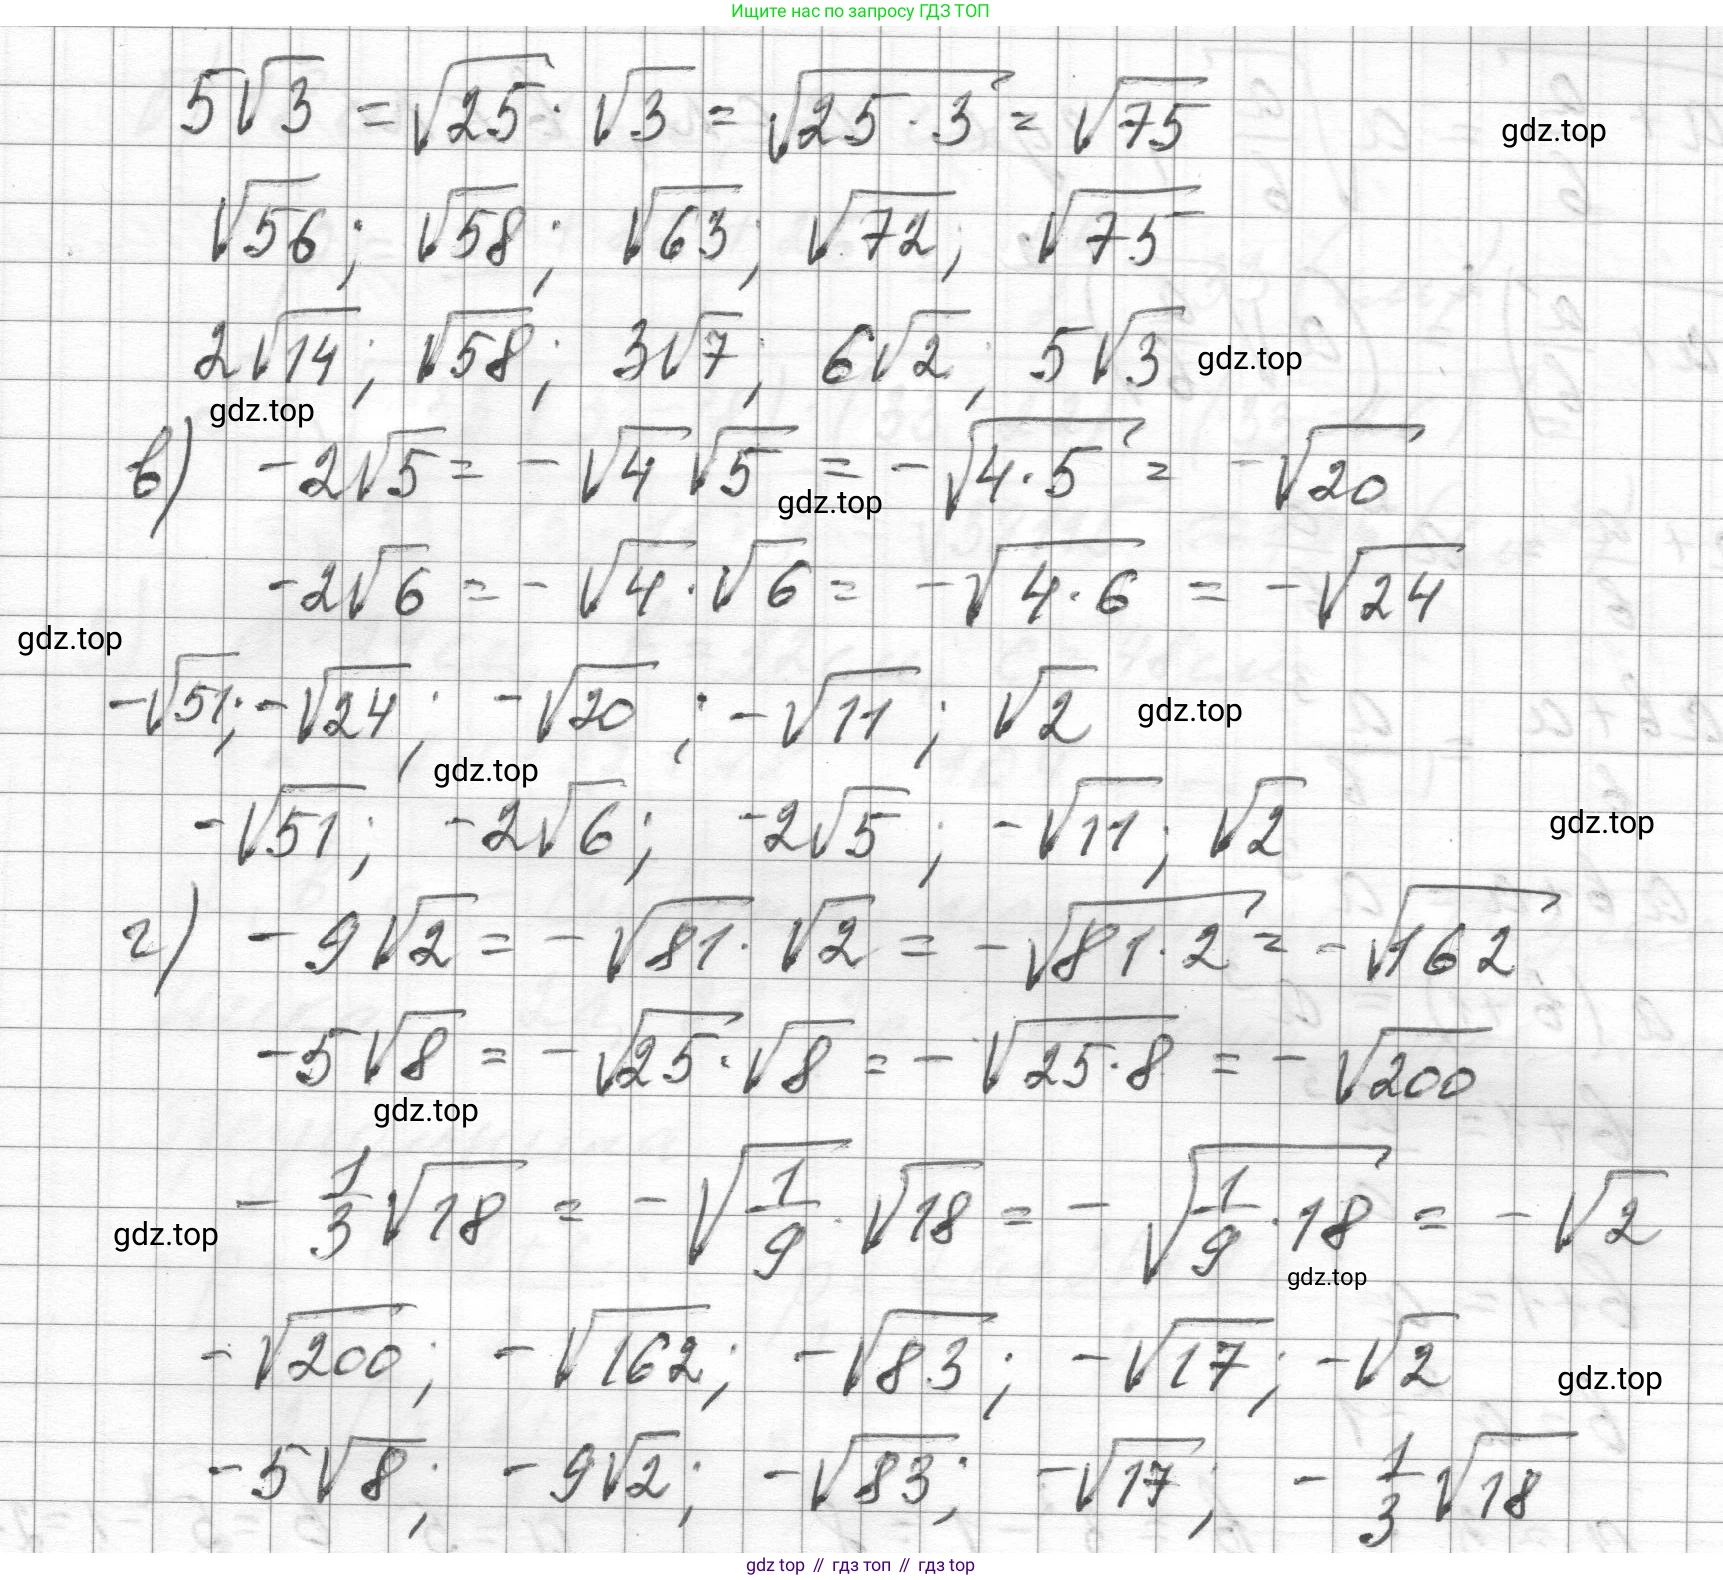 Ищите нас по запросу ГДЗ ТОП
5√3 = √25 · √3 = √(25 · 3) = √75
gdz.top
√56; √58; √63; √72; √75
2√14; √58; 3√7; 6√2; 5√3
gdz.top
gdz.top
в) -2√5 = -√4 √5 = -√(4 · 5) = -√20
gdz.top
-2√6 = -√4 · √6 = -√(4 · 6) = -√24
gdz.top
-√51; -√24; -√20; -√11; √2
gdz.top
gdz.top
-√51; -2√6; -2√5; -√11; √2
gdz.top
г) -9√2 = -√81 · √2 = -√(81 · 2) = -√162
-5√8 = -√25 · √8 = -√(25 · 8) = -√200
gdz.top
-1/3 √18 = -√(1/9) · √18 = -√(1/9 · 18) = -√2
gdz.top
gdz.top
-√200; -√162; -√83; -√17; -√2
gdz.top
-5√8; -9√2; -√83; -√17; -1/3 √18
gdz top // гдз топ // гдз top